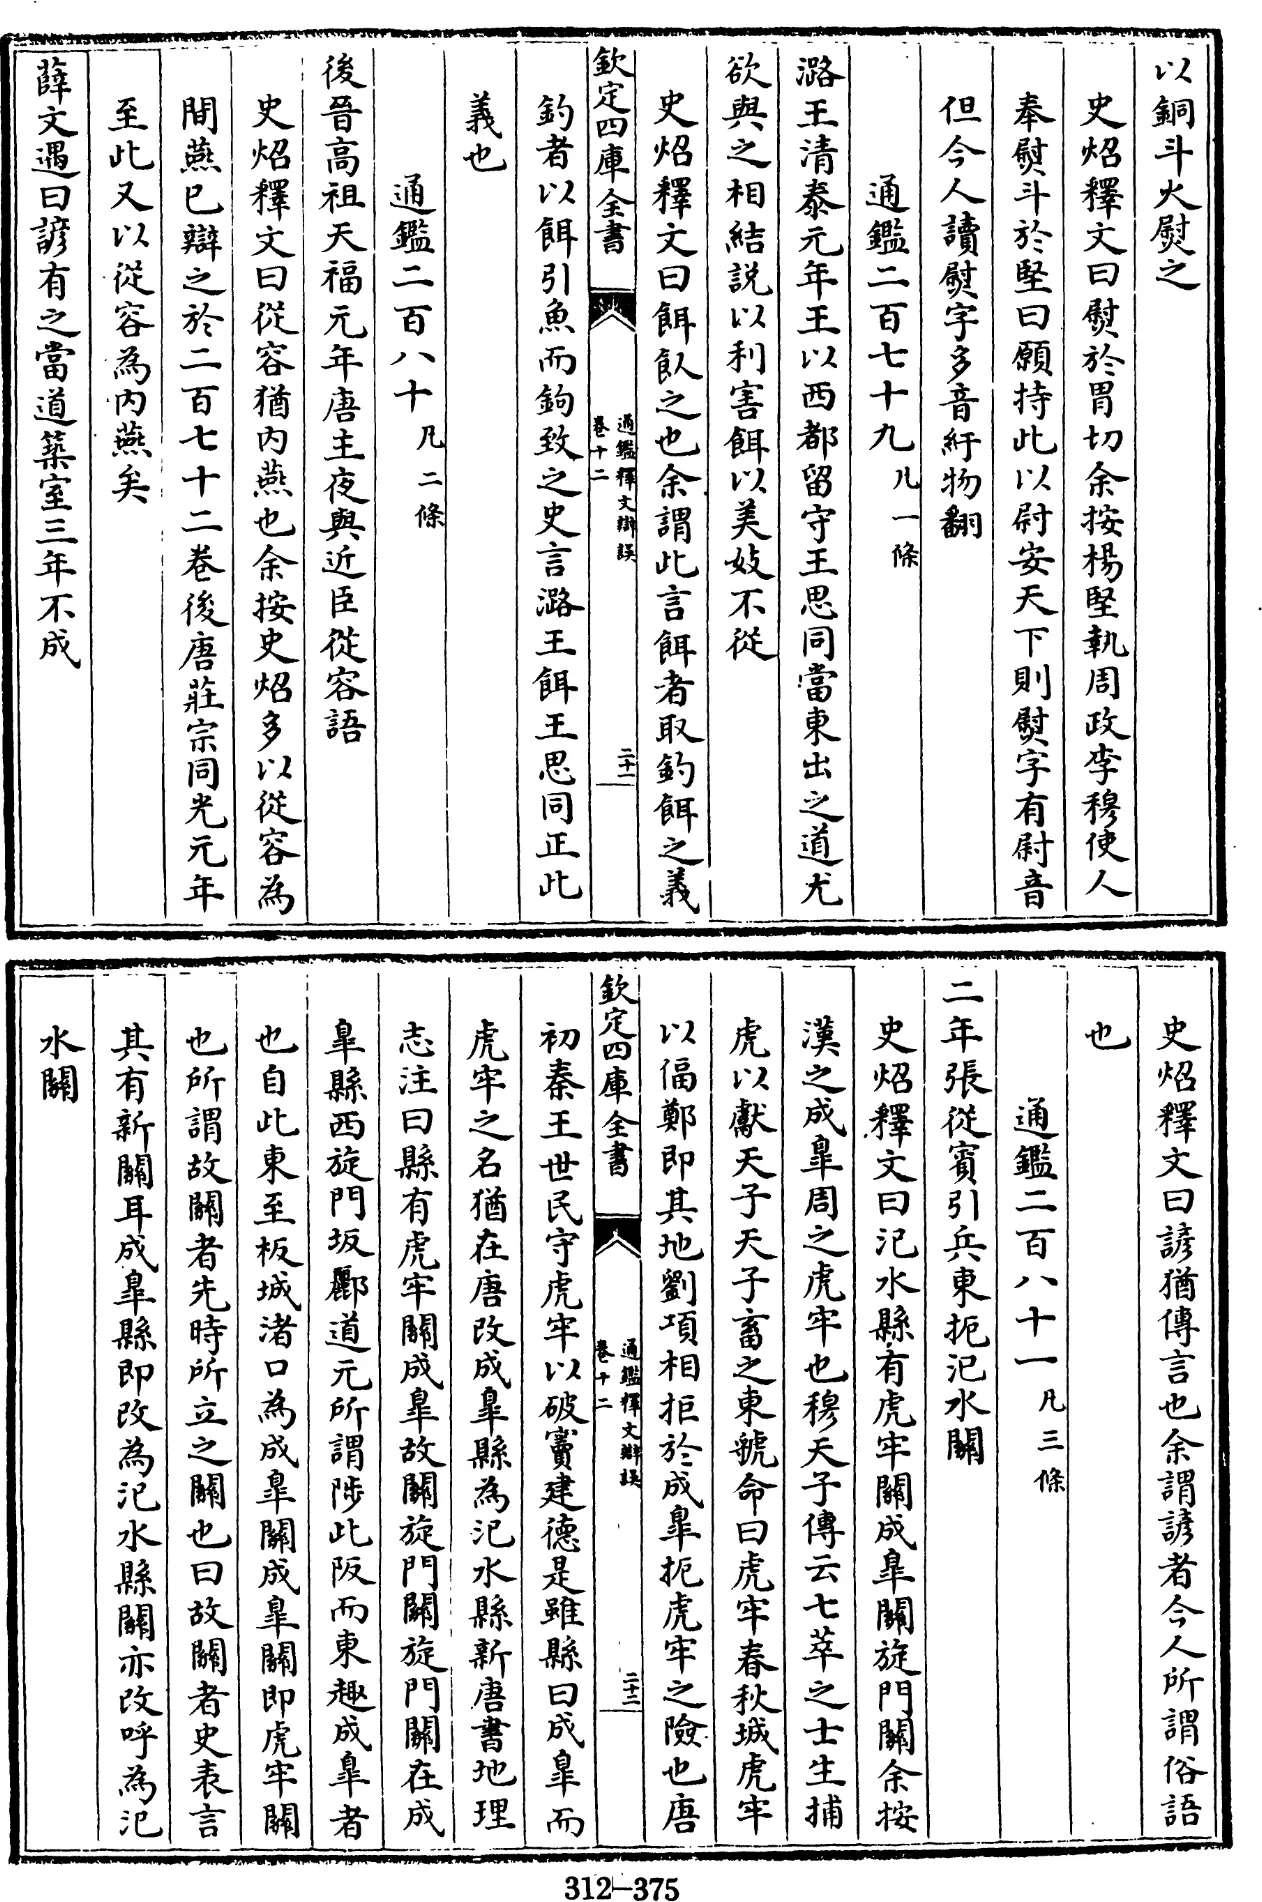 以銅斗火熨之
史炤釋文曰熨於胃切余按楊堅執周政李穆使人
奉熨斗於堅曰願持此以尉安天下則熨字有尉音
但今人讀熨字多音紆物翻
通鑑二百七十九 凡一條
潞王清泰元年王以西都留守王思同當東出之道尤
欲與之相結説以利害餌以美妓不從
史炤釋文曰餌飤之也余謂此言餌者取釣餌之義
欽定四庫全書
通鑑釋文辯誤
卷十二
二十一
釣者以餌引魚而鉤致之史言潞王餌王思同正此
義也
通鑑二百八十 凡二條
後晉高祖天福元年唐主夜與近臣從容語
史炤釋文曰從容猶内燕也余按史炤多以從容為
閒燕已辯之於二百七十二卷後唐莊宗同光元年
至此又以從容為内燕矣
薛文遇曰諺有之當道築室三年不成
史炤釋文曰諺猶傳言也余謂諺者今人所謂俗語
也
通鑑二百八十一 凡三條
二年張從賓引兵東扼汜水關
史炤釋文曰汜水縣有虎牢關成臯關旋門關余按
漢之成臯周之虎牢也穆天子傳云七萃之士生捕
虎以獻天子天子畜之東虢命曰虎牢春秋城虎牢
以偪鄭即其地劉項相拒於成臯扼虎牢之險也唐
欽定四庫全書
通鑑釋文辯誤
卷十二
二十二
初秦王世民守虎牢以破竇建德是雖縣曰成臯而
虎牢之名猶在唐改成臯縣為汜水縣新唐書地理
志注曰縣有虎牢關成臯故關旋門關旋門關在成
臯縣西旋門坂酈道元所謂陟此阪而東趣成臯者
也自此東至板城渚口為成臯關成臯關即虎牢關
也所謂故關者先時所立之關也曰故關者史表言
其有新關耳成臯縣即改為汜水縣關亦改呼為汜
水關
312-375